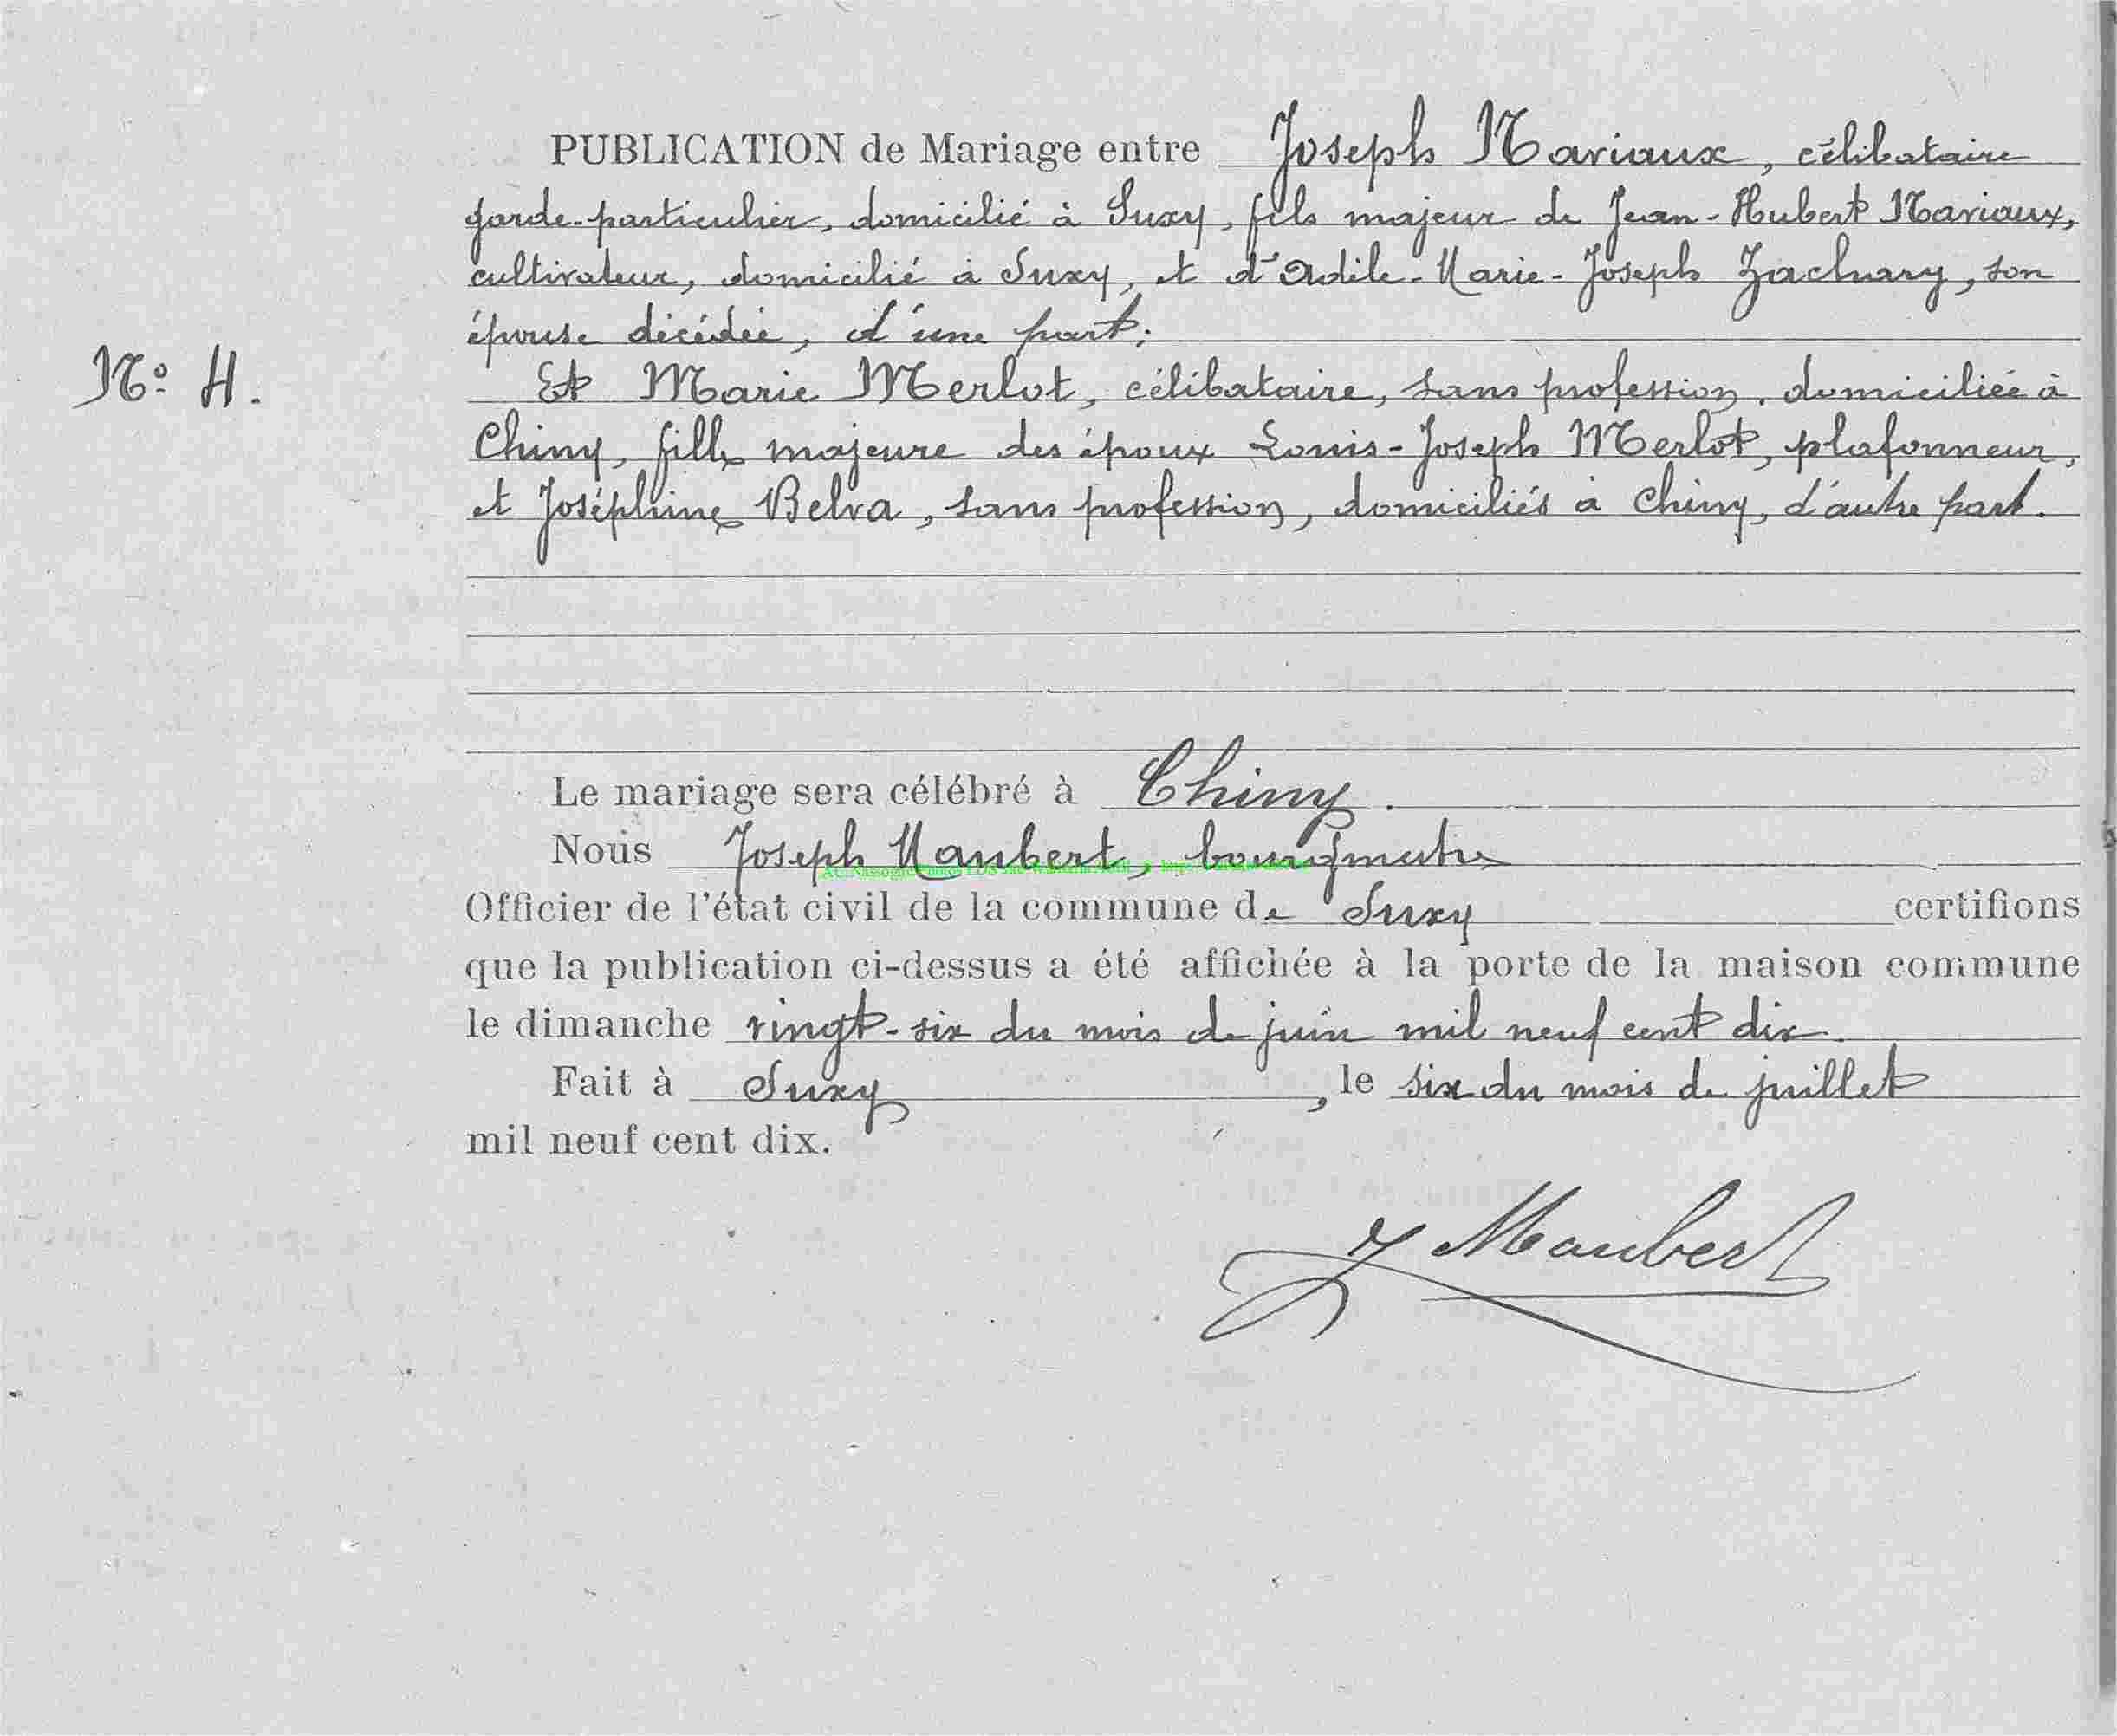 PUBLICATION de Mariage entre Joseph Nariaux, célibataire
garde-particulier, domicilié à Suxy, fils majeur de Jean-Hubert Nariaux,
cultivateur, domicilié à Suxy, et d'Adile-Marie-Joseph Zachary, son
épouse décédée, d'une part;
N° 4. Et Marie Merlot, célibataire, sans profession, domiciliée à
Chiny, fille majeure des époux Louis-Joseph Merlot, plafonneur,
et Joséphine Belva, sans profession, domiciliés à Chiny, d'autre part.
Le mariage sera célébré à Chiny.
Nous Joseph Maubert, bourgmestre
Officier de l'état civil de la commune de Suxy certifions
que la publication ci-dessus a été affichée à la porte de la maison commune
le dimanche vingt-six du mois de juin mil neuf cent dix.
Fait à Suxy, le six du mois de juillet
mil neuf cent dix.
J Maubert